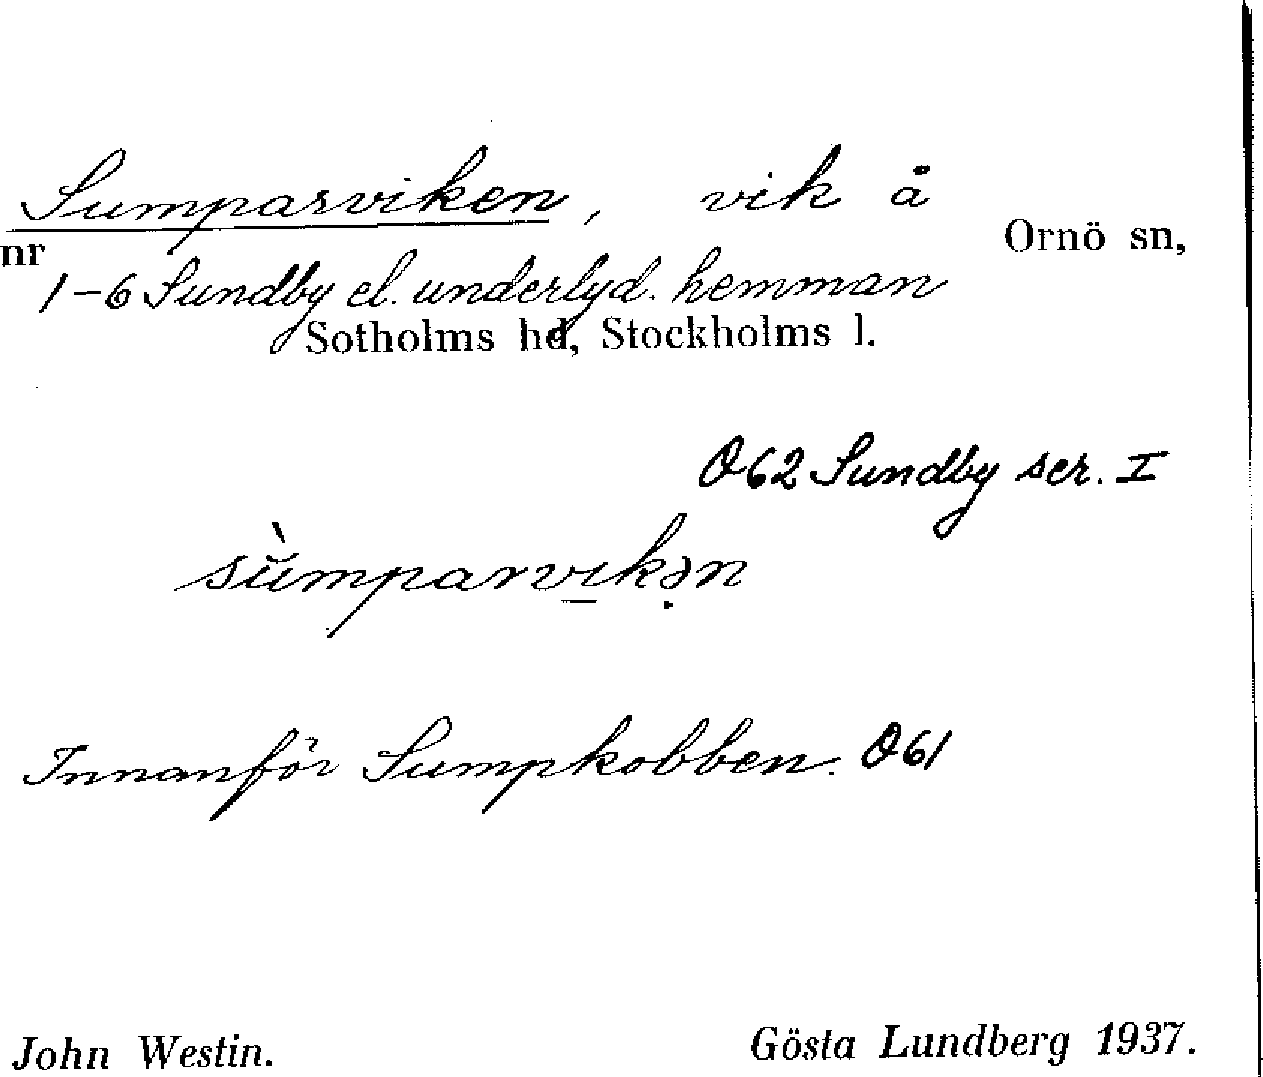 Sumparviken, vik å
Ornö sn,
nr
1-6 Sundby el. underlyd. hemman
Sotholms hd, Stockholms l.
O62 Sundby ser. I
sù̆mparvı̲kə̣n
Innanför Sumpkobben. O61
John Westin. Gösta Lundberg 1937.